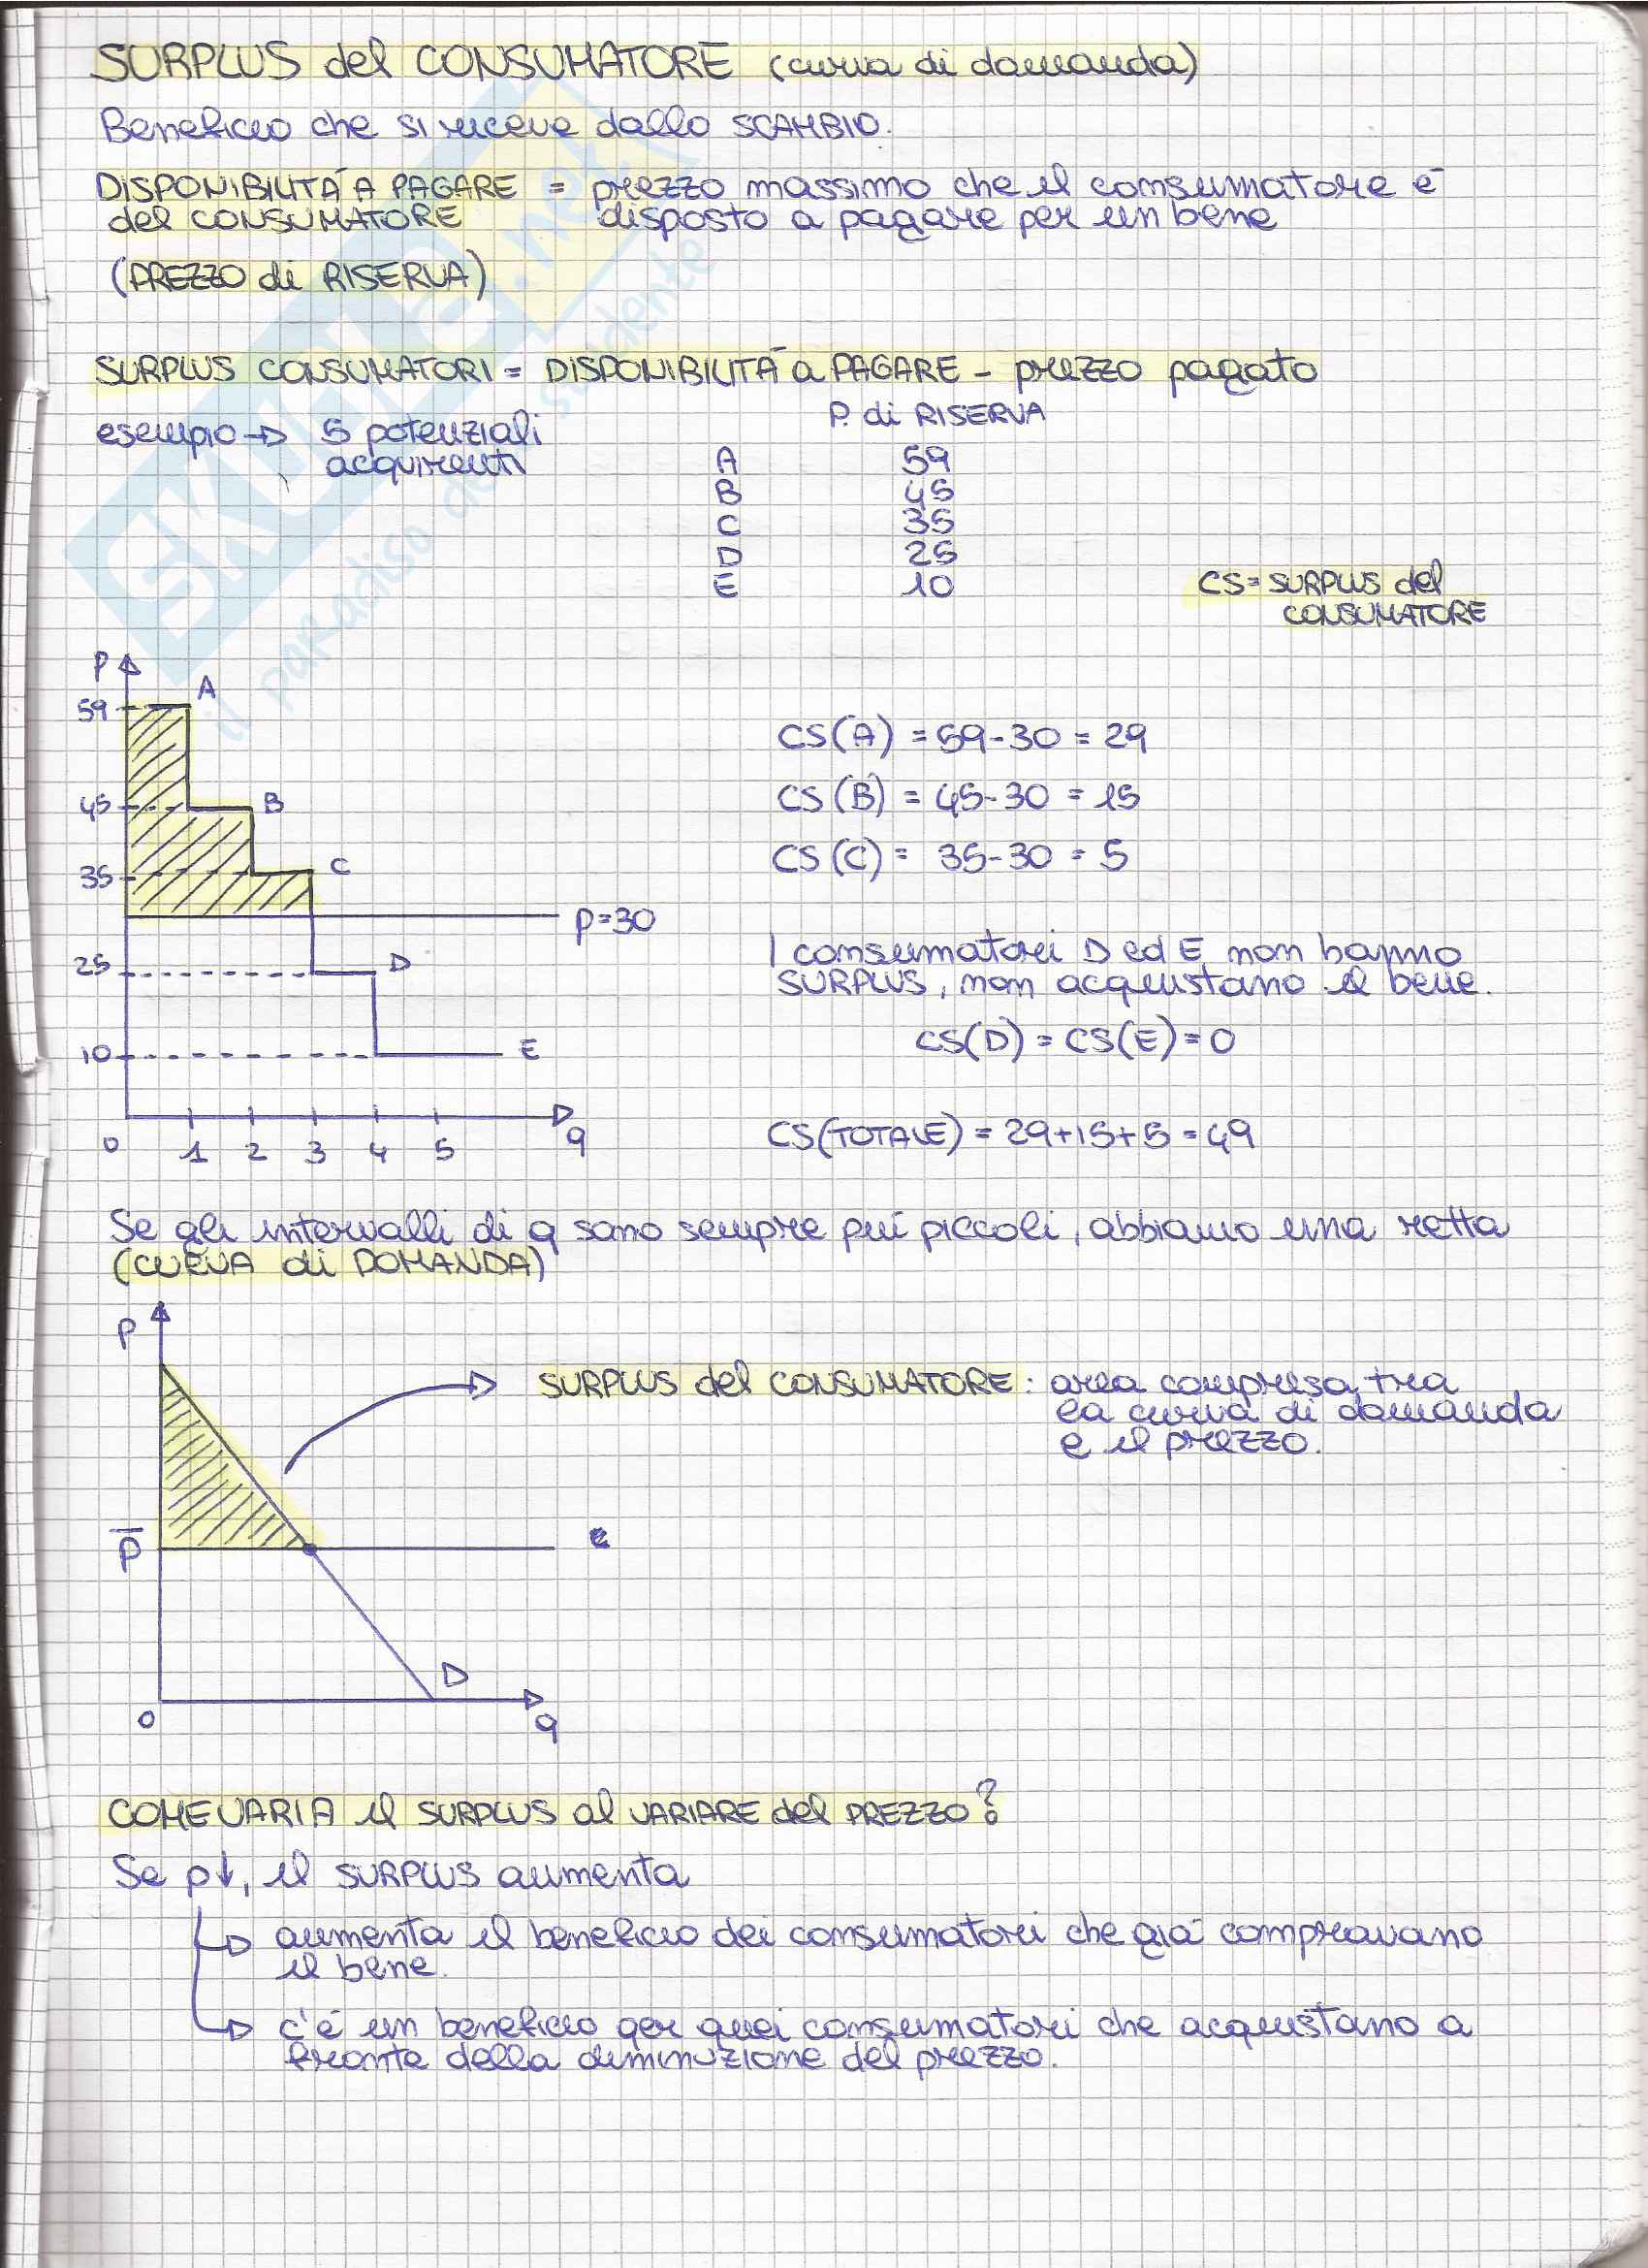 SURPLUS del CONSUMATORE (curva di domanda)
Beneficio che si riceve dallo SCAMBIO.
DISPONIBILITÀ A PAGARE = prezzo massimo che il consumatore è
del CONSUMATORE disposto a pagare per un bene
(PREZZO di RISERVA)
SURPLUS CONSUMATORI = DISPONIBILITÀ a PAGARE - prezzo pagato
esempio → 5 potenziali
acquirenti
P. di RISERVA
A 59
B 45
C 35
D 25
E 10
CS = SURPLUS del
CONSUMATORE
P
59
A
45
B
35
C
p=30
25
D
10
E
0 1 2 3 4 5 q
CS(A) = 59-30 = 29
CS(B) = 45-30 = 15
CS(C) = 35-30 = 5
I consumatori D ed E non hanno
SURPLUS, non acquistano il bene.
CS(D) = CS(E) = 0
CS(TOTALE) = 29+15+5 = 49
Se gli intervalli di q sono sempre più piccoli, abbiamo una retta
(CURVA di DOMANDA)
P
SURPLUS del CONSUMATORE: area compresa tra
la curva di domanda
e il prezzo.
p̅
D
0
q
COME VARIA il SURPLUS al VARIARE del PREZZO?
Se p↓, il SURPLUS aumenta
→ aumenta il beneficio dei consumatori che già compravano
il bene.
→ c'è un beneficio per quei consumatori che acquistano a
fronte della diminuzione del prezzo.
SKUOLA.net
il paradiso dello studente